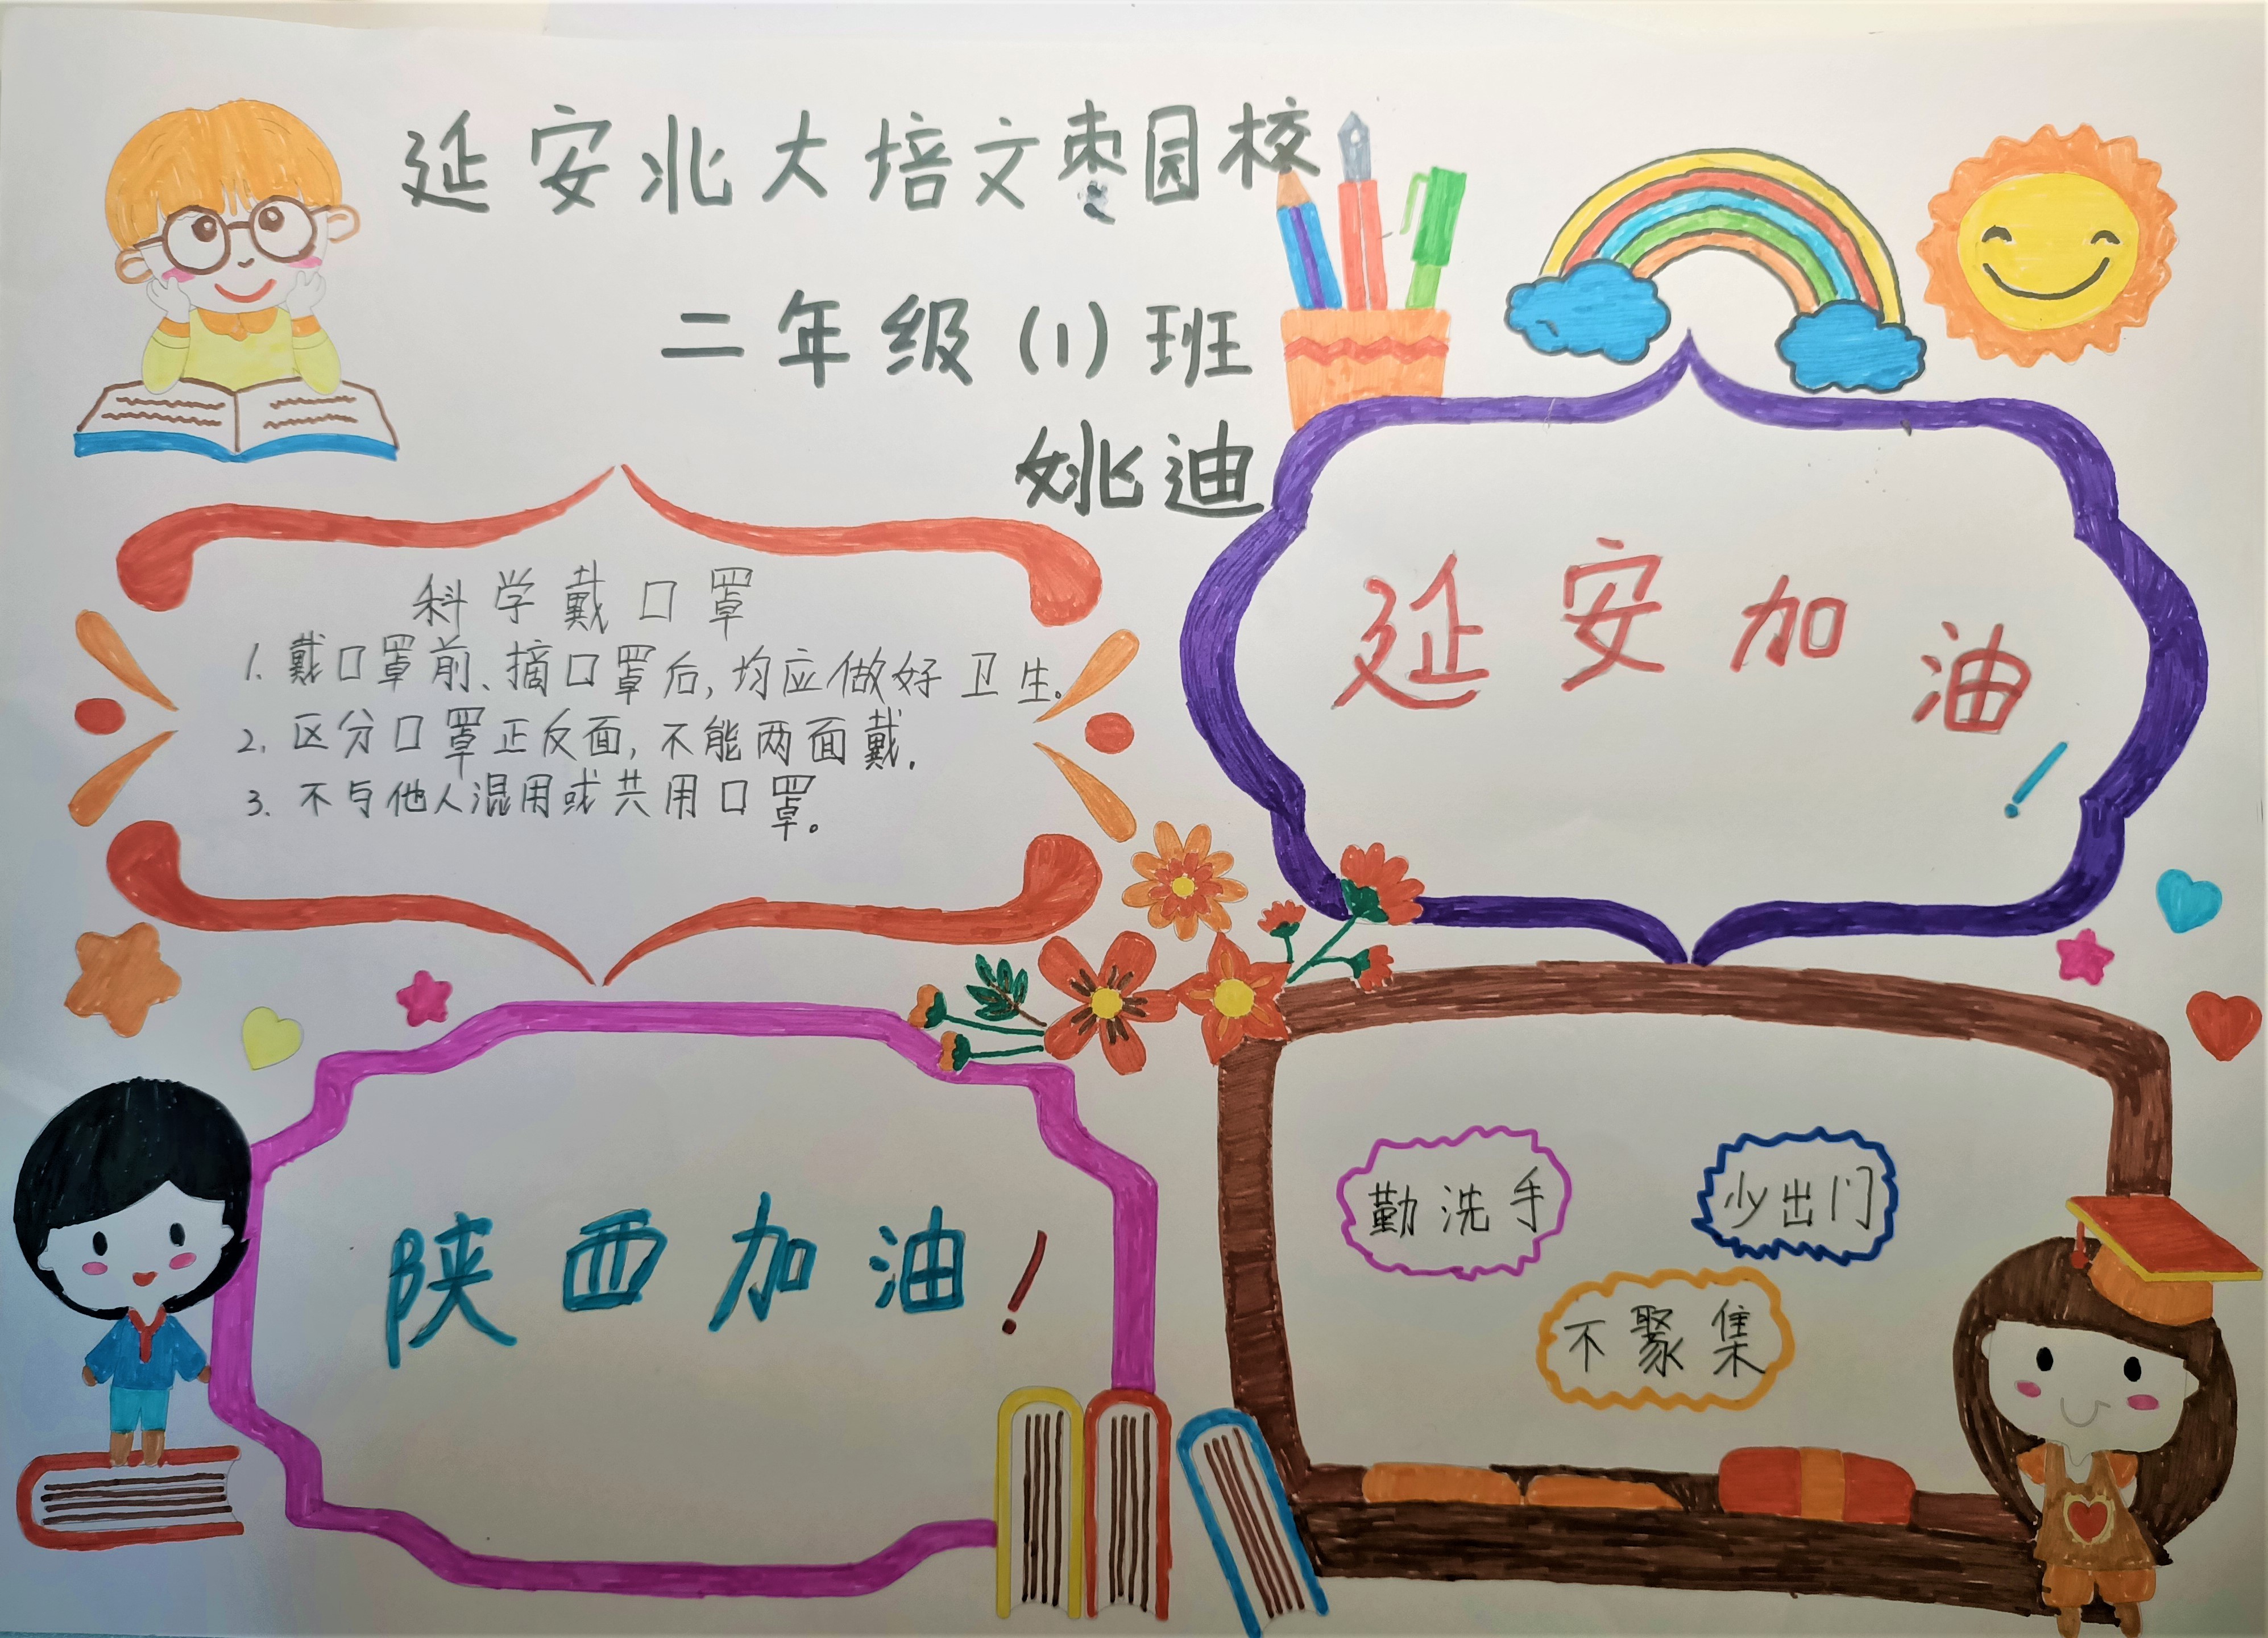 延安北大培文枣园校
二年级(1)班
姚迪
科学戴口罩
1.戴口罩前、摘口罩后,均应做好卫生。
2.区分口罩正反面,不能两面戴.
3.不与他人混用或共用口罩。
延安加油!
陕西加油!
勤洗手
少出门
不聚集